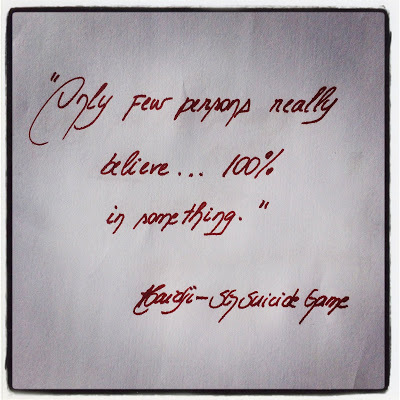 "Only few persons really
believe... 100%
in something."
Haidji - SG Suicide Game